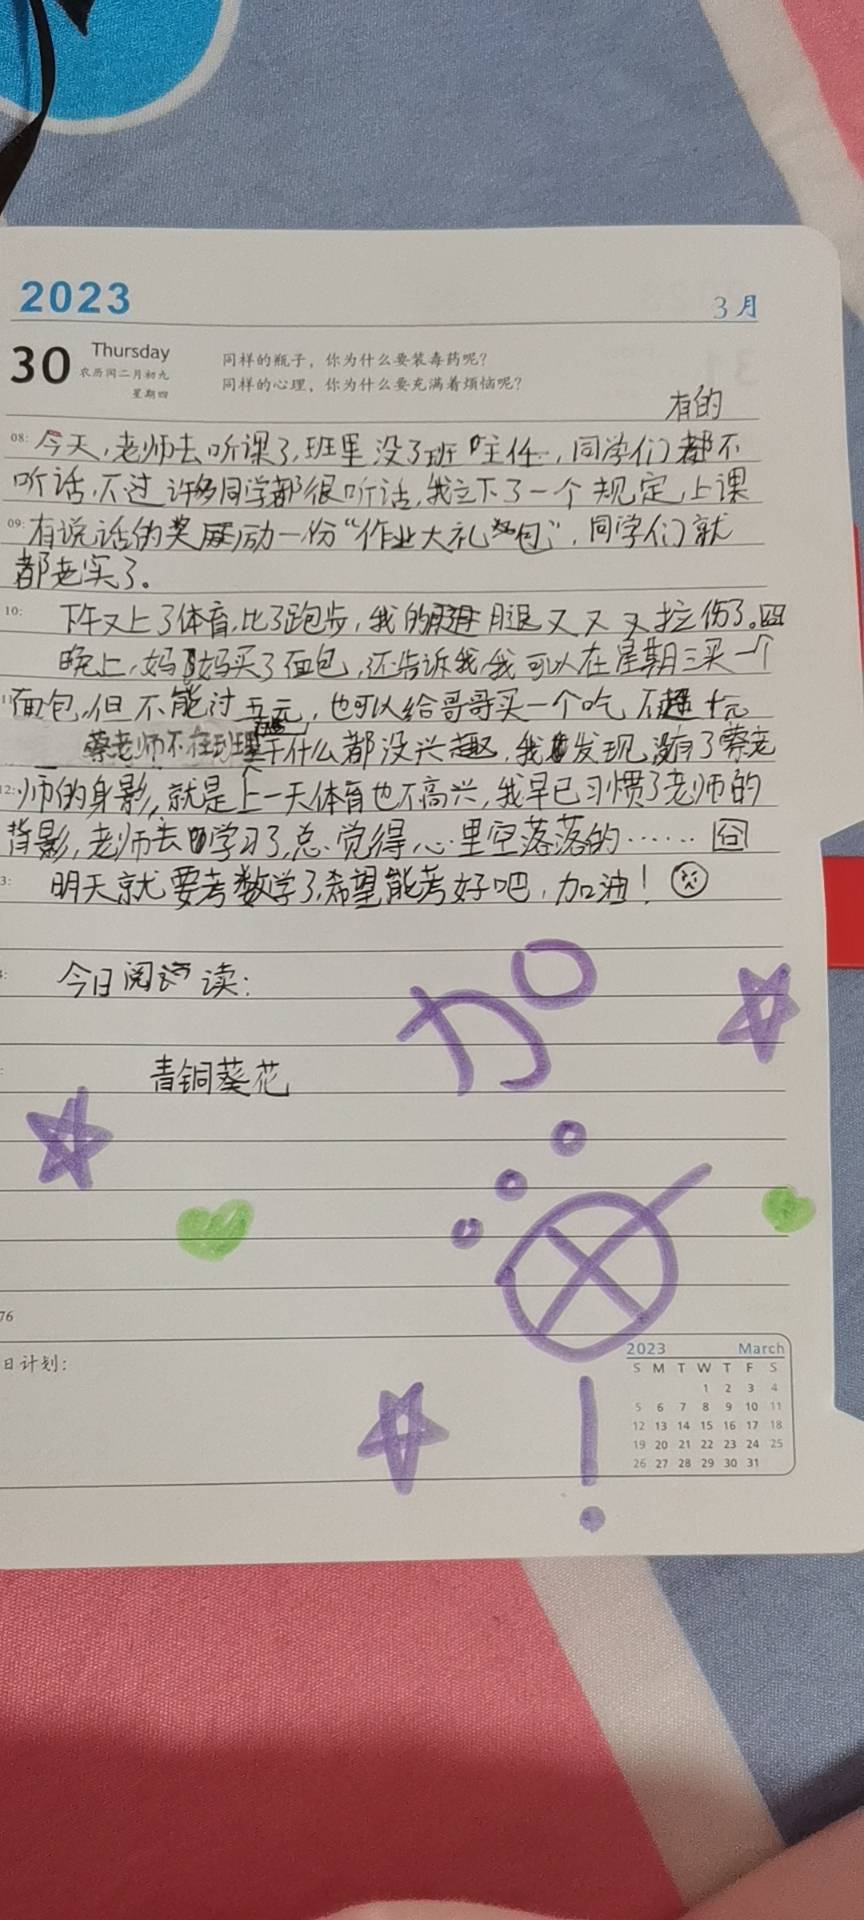 2023
3月
30 Thursday
农历闰二月初九
星期四
同样的瓶子，你为什么要装毒药呢？
同样的心理，你为什么要充满着烦恼呢？
有的
08: 今天，老师去听课了，班里没了班主任，同学们都不
听话，不过许多同学都很听话，我立下了一个规定，上课
09: 有说话的奖励一份“作业大礼包”，同学们就
都老实了。
10: 下午又上了体育，比了跑步，我的腿又又又拉伤了。囧
晚上，妈妈买了面包，还告诉我，我可以在星期三买一个
面包，但不能过五元，也可以给哥哥买一个吃，不超十元
蔡老师不在班里干什么都没兴趣，我发现没有了蔡老
12: 师的身影，就是上一天体育也不高兴，我早已习惯了老师的
背影，老师去学习了，总觉得心里空落落的……囧
3: 明天就要考数学了，希望能考好吧，加油！
今日阅读：
青铜葵花
加
油
！
76
日计划：
2023 March
S M T W T F S
1 2 3 4
5 6 7 8 9 10 11
12 13 14 15 16 17 18
19 20 21 22 23 24 25
26 27 28 29 30 31